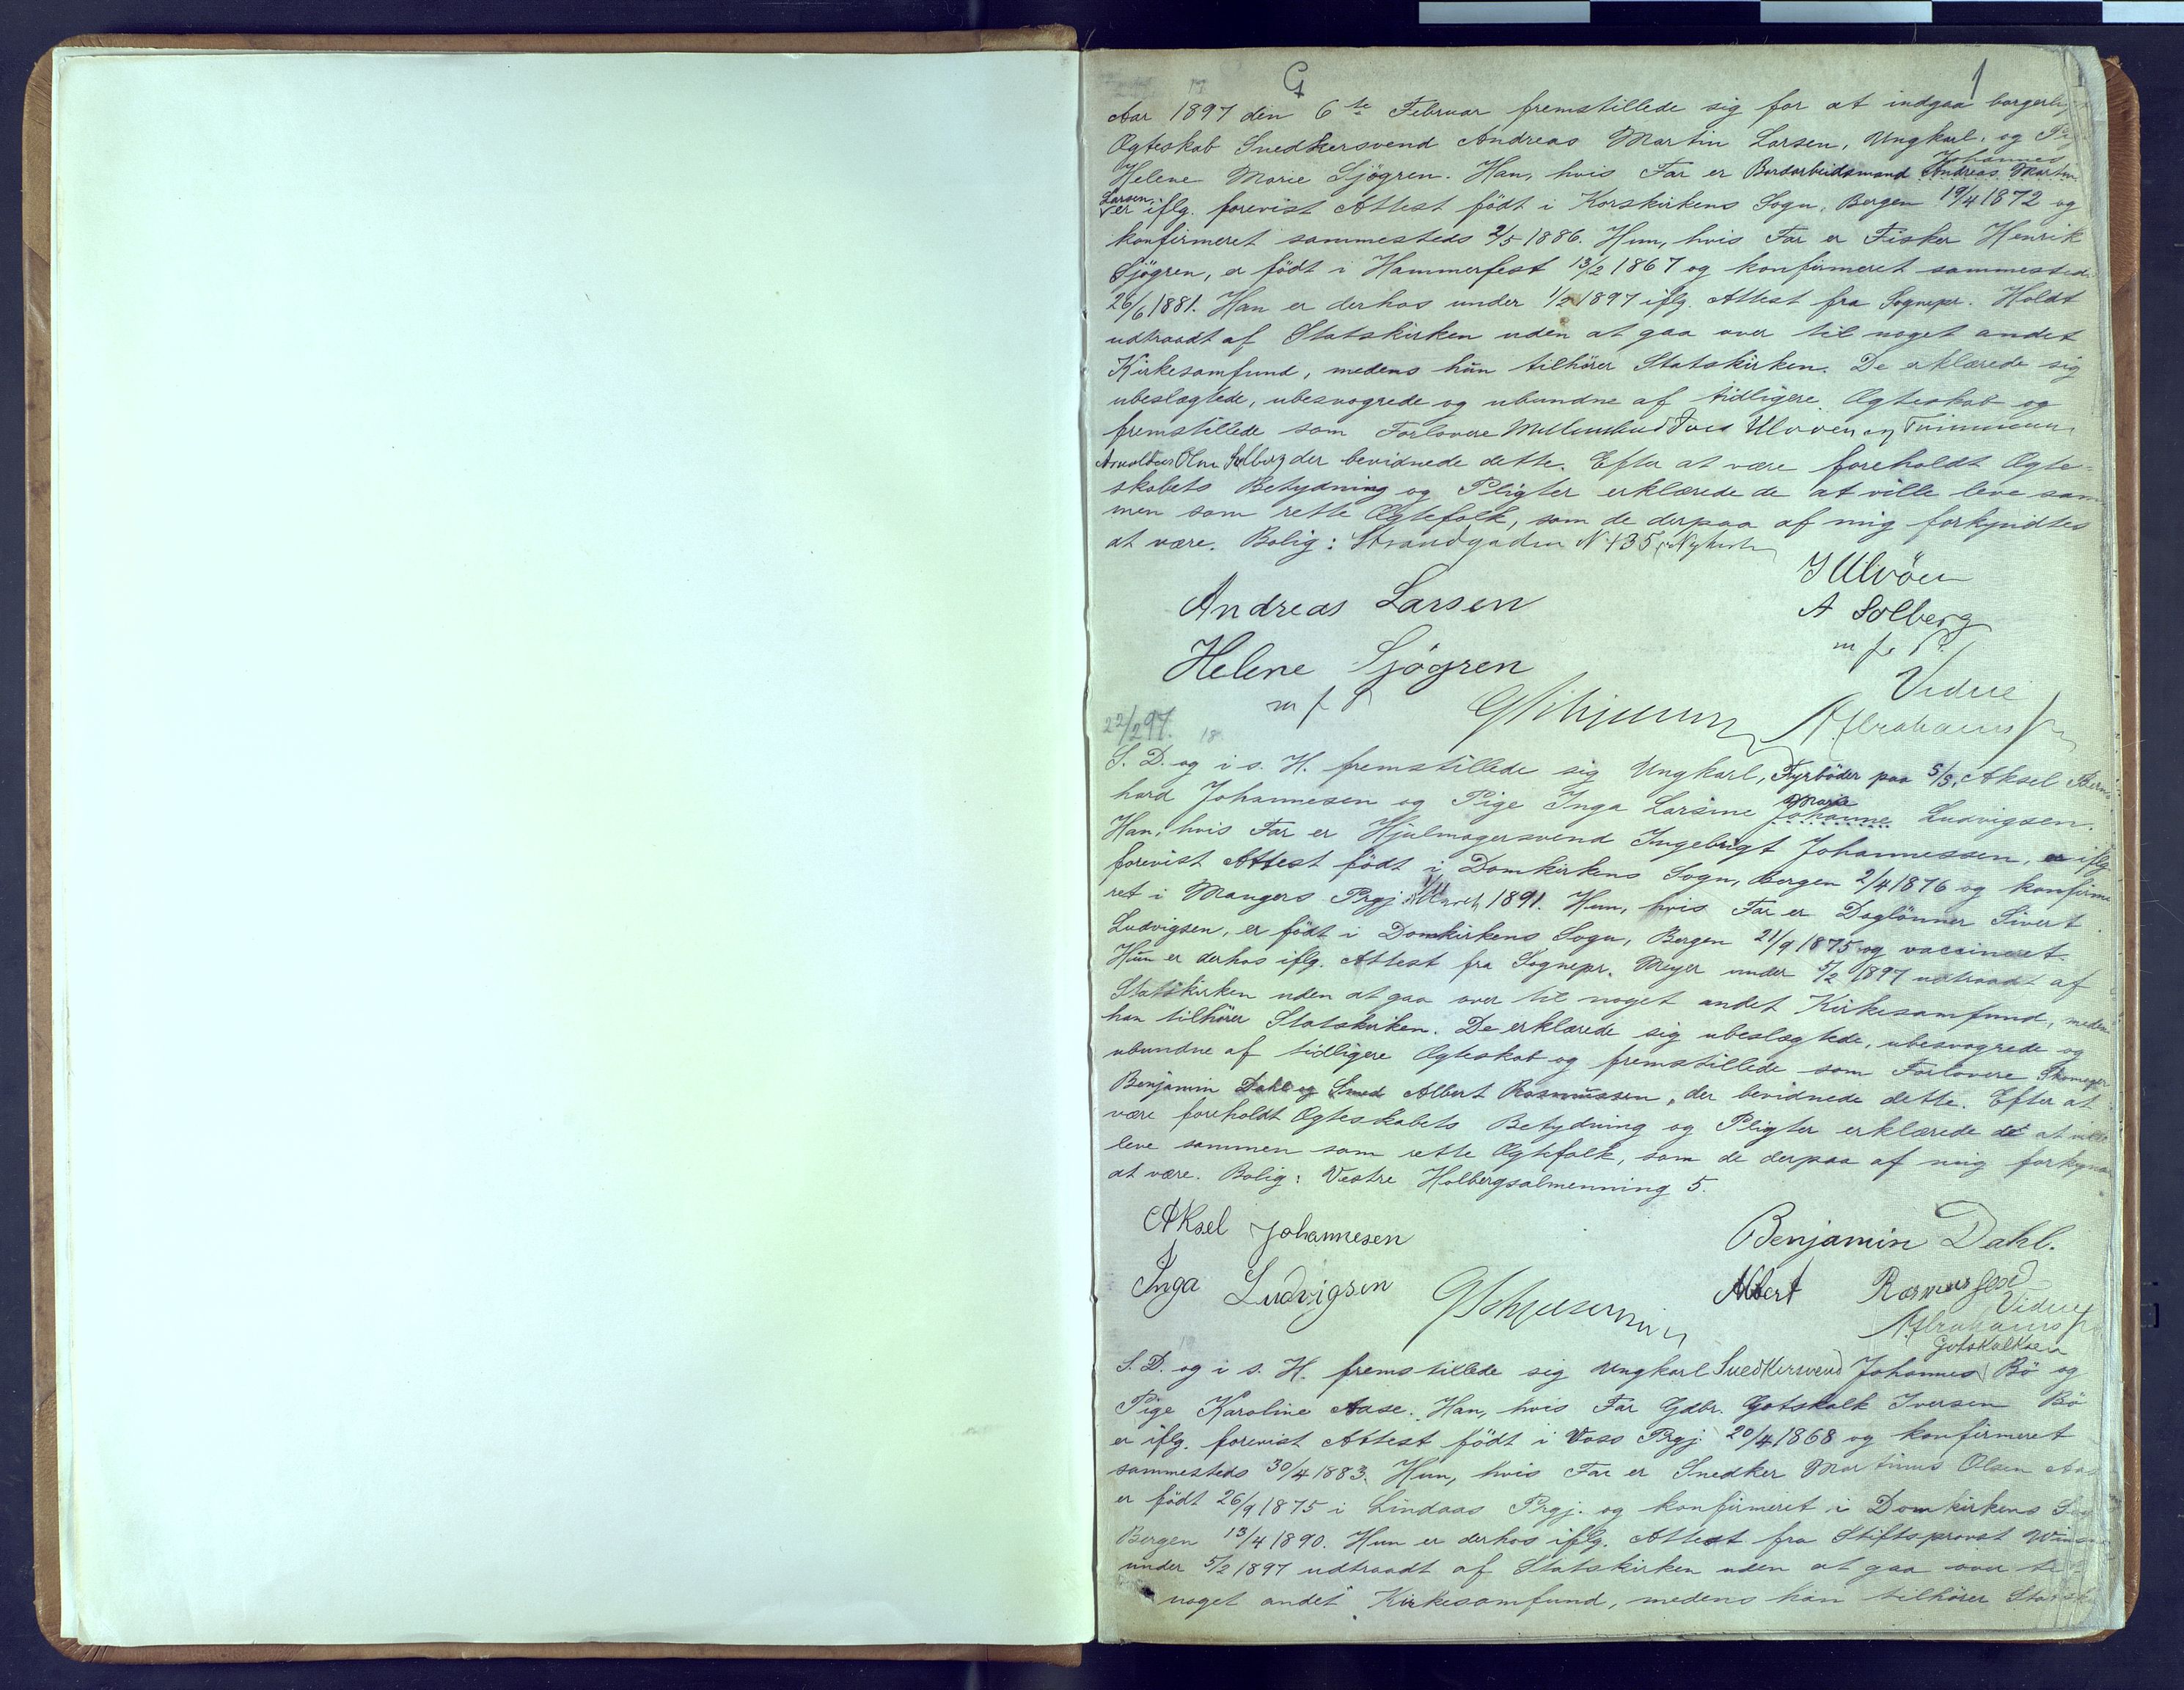 G 1
Aar 1897 den 6te Februar fremstillede sig for at indgaa borgerligt
Ægteskab Snedkersvend Andreas Martin Larsen, Ungkarl, og Pige
Helene Marie Sjögren. Han, hvis Far er Bordarbeidsmand Andreas Martin
Johannes
Larsen,
er iflg. forevist Attest födt i Korskirkens Sogn, Bergen 19/4 1872 og
konfirmeret sammesteds 2/5 1886. Hun, hvis Far er Fisker Henrik
Sjögren, er födt i Hammerfest 13/2 1867 og konfirmeret sammesteds
26/6 1881. Han er derhos under 1/2 1897 iflg. Attest fra Sognepr. Holdt
udtraadt af Statskirken uden at gaa over til noget andet
Kirkesamfund, medens hun tilhörer Statskirken. De erklærede sig
ubeslægtede, ubesvogrede og ubundne af tidligere Ægteskab og
fremstillede som Forlovere Ulvöen og Tömmerm.
Arnoldus Olsen Solberg der bevidnede dette. Efter at være foreholdt Ægte-
skabets Betydning og Pligter erklærede de at ville leve sam-
men som rette Ægtefolk, som de derpaa af mig forkyndtes
at være. Bolig: Strandgaden N 135,
Andreas Larsen
J Ulvöen
A Solberg
m f P.
Helene Sjögren
m f P
Vidne
Abrahamsen
22/2 97. 18
S. D. og i s. H. fremstillede sig Ungkarl, Fyrböder paa S/S, Aksel Bern-
hard Johannesen og Pige Inga Larsine Johanne Ludvigsen.
Marie
Han, hvis Far er Hjulmagersvend Ingebrigt Johannessen, er iflg.
forevist Attest födt i Domkirkens Sogn, Bergen 2/4 1876 og konfirme-
ret i Mangers Prgj. 1891. Hun, hvis Far er Daglönner Sivert
Ludvigsen, er födt i Domkirkens Sogn, Bergen 21/9 1875 og vaccineret.
Hun er derhos iflg. Attest fra Sognepr. Meyer under 5/2 1897 udtraadt af
Statskirken uden at gaa over til noget andet Kirkesamfund, medens
han tilhörer Statskirken. De erklærede sig ubeslægtede, ubesvogrede og
ubundne af tidligere Ægteskab og fremstillede som Forlovere Skomager
Benjamin Dahl og Smed Albert Rasmussen, der bevidnede dette. Efter at
være foreholdt Ægteskabets Betydning og Pligter erklærede de at ville
leve sammen som rette Ægtefolk, som de derpaa af mig forkyndtes
at være. Bolig: Vestre Holbergsalmenning 5.
Aksel Johannesen
Benjamin Dahl.
Inga Ludvigsen
Albert Rasmussen
Vidne
Abrahamsen
S. D. og i s. H. fremstillede sig Ungkarl Snedkersvend Johannes Bö og
Gotskalksen
Pige Karoline Aase. Han, hvis Far Gdbr. Gotskalk Iversen Bö
er iflg. forevist Attest födt i Voss Prgj 20/4 1868 og konfirmeret
sammesteds 30/4 1883. Hun, hvis Far er Snedker Martinus Olsen Aase
er födt 26/9 1875 i Lindaas Prgj. og konfirmeret i Domkirkens Sogn
Bergen 13/4 1890. Hun er derhos iflg. Attest fra Stiftsprovst
under 5/2 1897 udtraadt af Statskirken uden at gaa over til
noget andet Kirkesamfund, medens han tilhörer Statsk